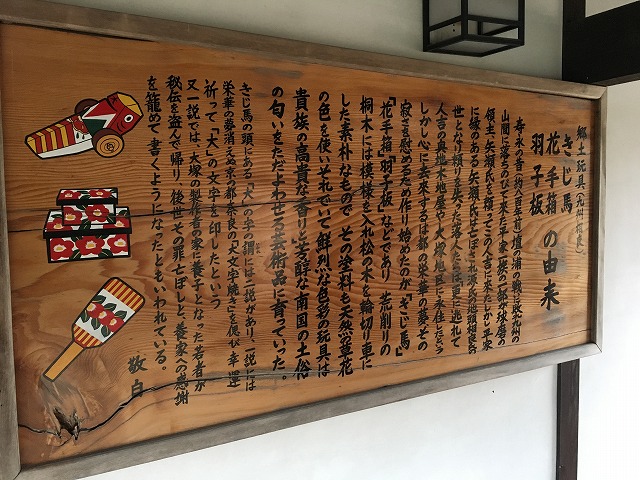 郷土玩具(九州相良)
きじ馬
花手箱
羽子板
の由来
寿永の昔(約八百年前)壇の浦の戦に敗れ九州の
山間に落ちのびて来た平家一族の一部が球磨の
領主、矢瀬氏を頼ってこの人吉に来たしかし平家
に縁のある矢瀬氏は亡ぼされ源氏の地頭相良の
世となり頼りを失った落人たちは更に逃れて
人吉の奥地木地屋や大塚地区に永住したという
しかし心に去来するは都の栄華の夢、その
寂しさを慰めるため作り始めたのが「きじ馬」
「花手箱」「羽子板」などであり 荒削りの
桐木には模様を入れ松の木を輪切り車に
した素朴なもので その塗料も天然の草花
の色を使いそれでいて鮮烈な色彩の玩具は
貴族の高貴な香りと芳醇な南国の土俗
の匂いをただよわせる芸術品に育っていった。
きじ馬の頭にある「大」の字の謂には二説があり、一説には
栄華の夢消えぬ京の都奈良の「大文字焼き」を偲び 幸運
祈って「大」の文字を印したという
又一説では、大塚の製作者の家に養子となった若者が
秘伝を盗んで帰り 後世その罪亡ぼしと、養家への感謝
を籠めて 書くようになったともいわれている。
敬白